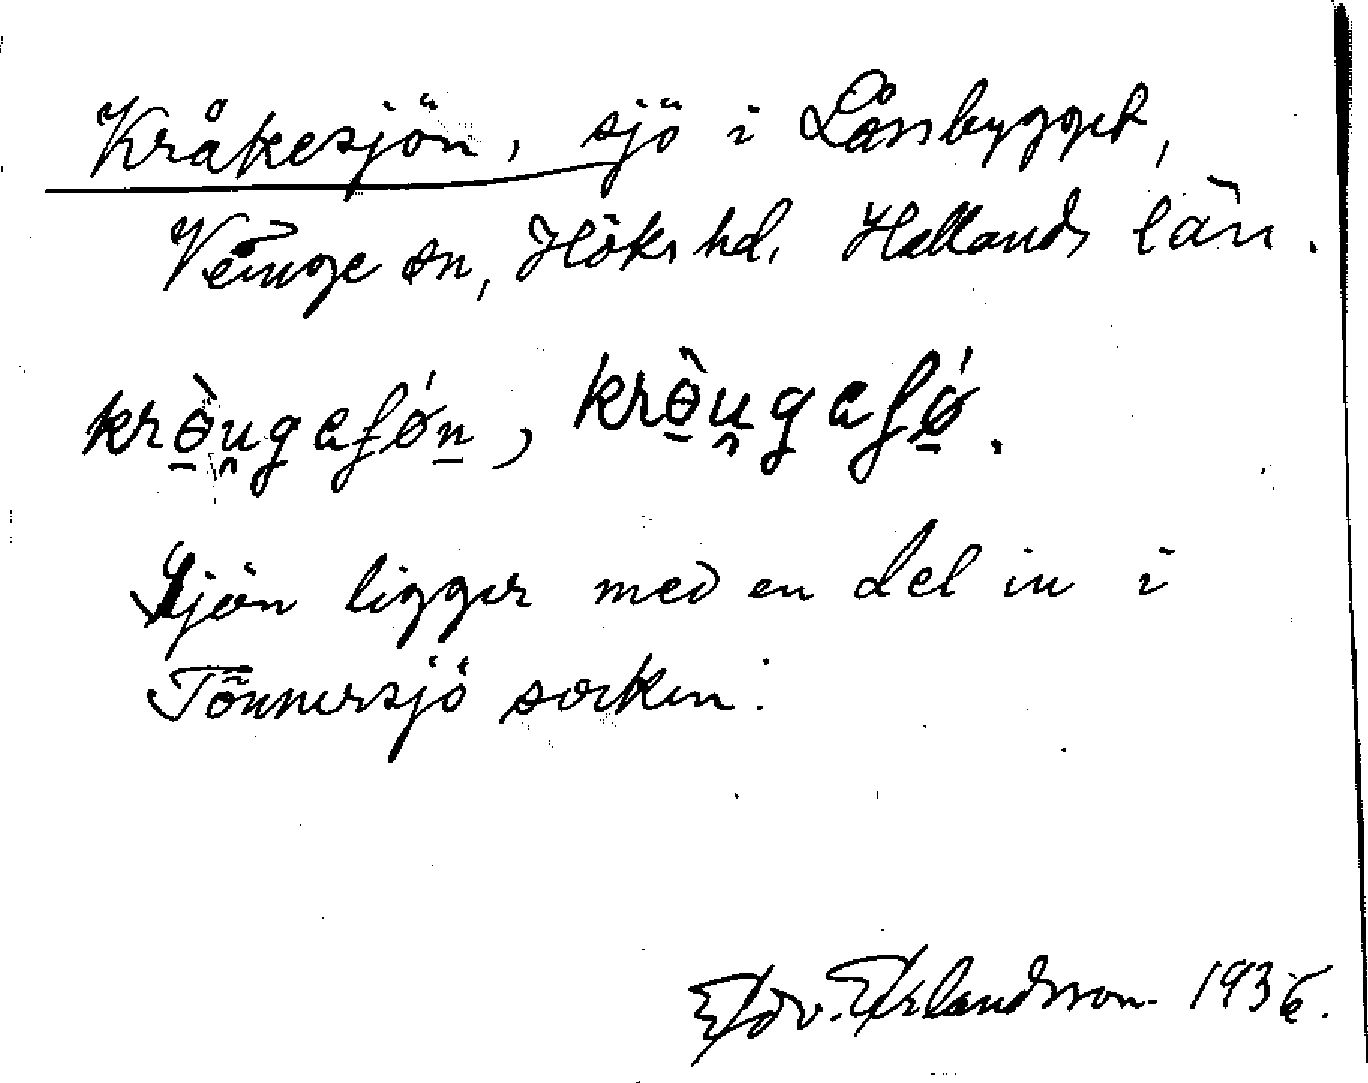 Kråkesjön, sjö i Lånsbygget,
Veinge sn, Höks hd, Hallands län.
krө̱̀u̯gaʃǿn̲, krө̱̀u̯gaʃǿ̱.
Sjön ligger med en del in i
Tönnersjö socken.
Edv. Erlandsson 1936.